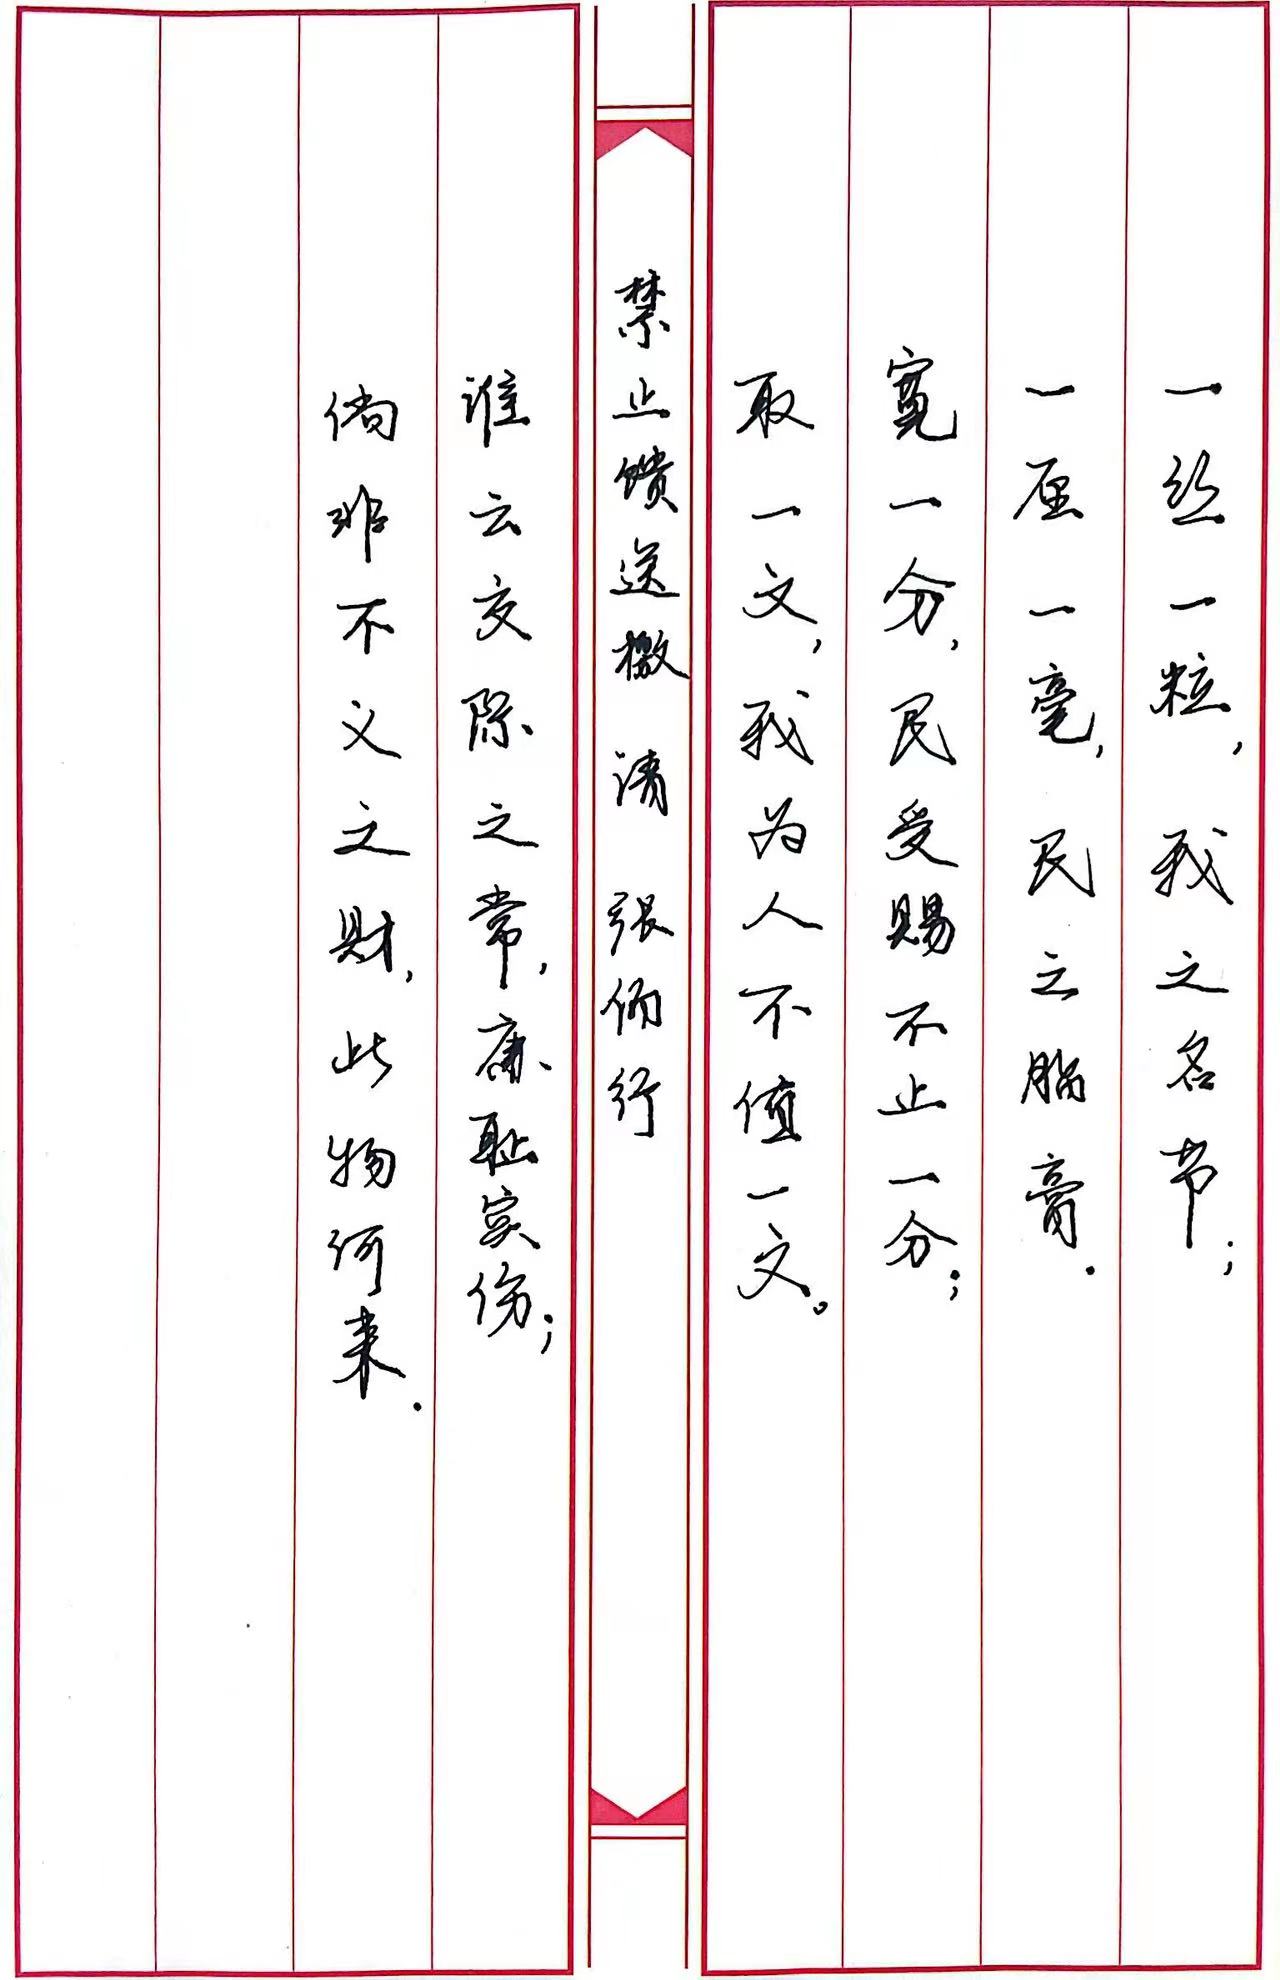 一丝一粒，我之名节；
一厘一毫，民之脂膏.
寬一分，民受赐不止一分；
取一文，我为人不值一文。
禁止馈送檄 清 张伯行
谁云交际之常，廉耻实伤；
倘非不义之财，此物何来.